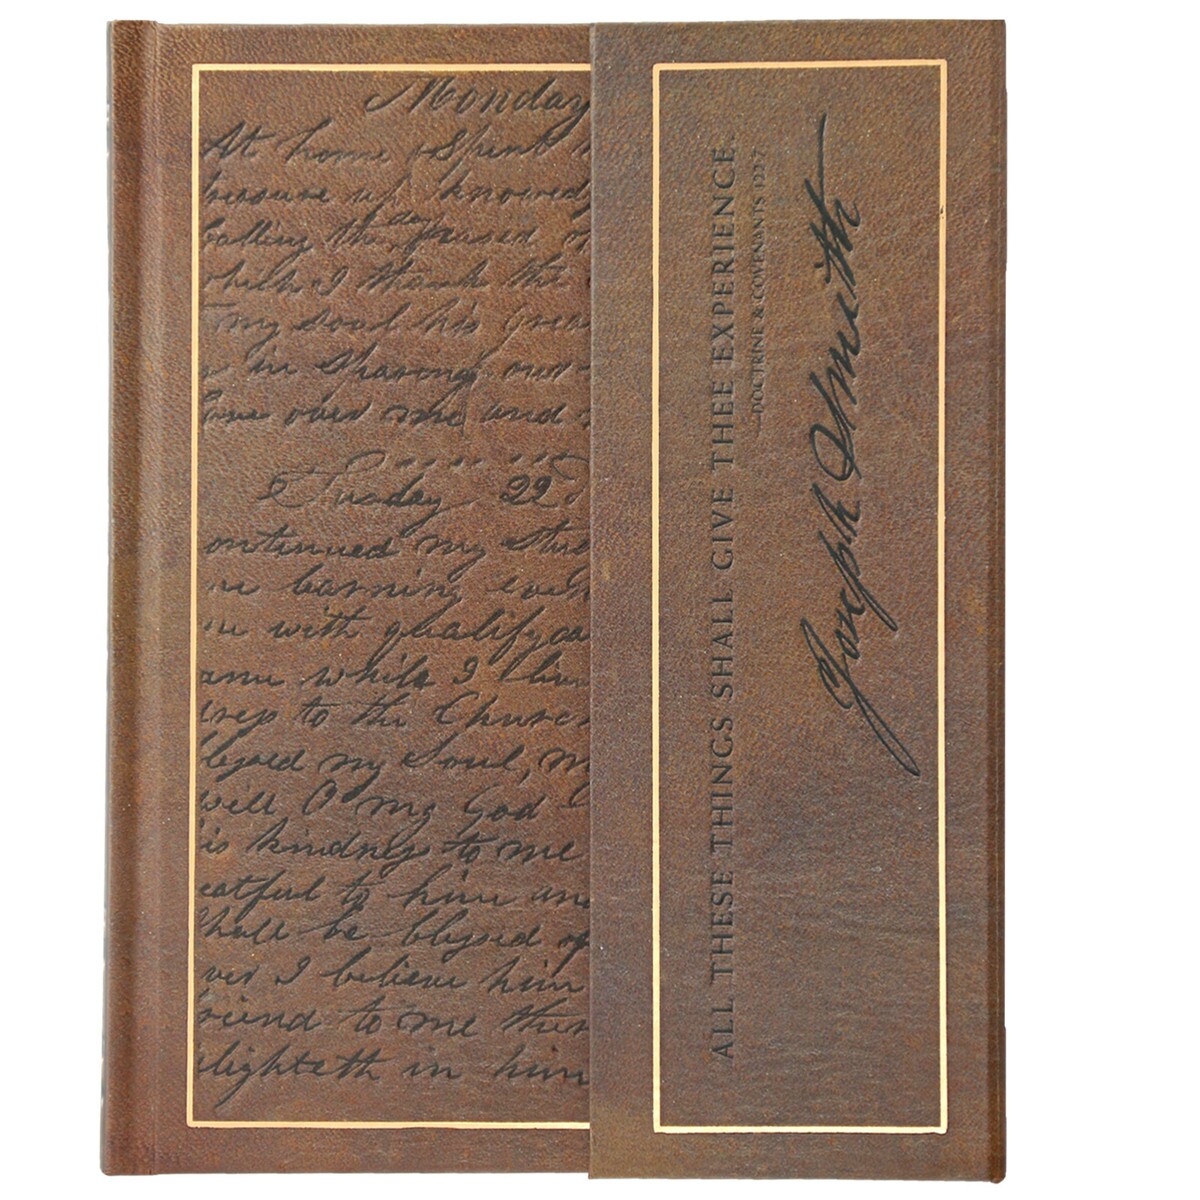 Monday
At home Spent
treasure up knowledg
balling the day passed of
which I thank the
my soul his grea
in sparing our
love over me and
Tuesday 29
ontinued my stud
learning even
with qualifyca
ame while I live
to the Church
blessed my Soul, M
will O my God
is kindness to me
eatful to him and
Shall be blessed of
ver I believe him
riend to me then
lighteth in him
ALL THESE THINGS SHALL GIVE THEE EXPERIENCE.
—DOCTRINE & COVENANTS 122:7
Joseph Smith